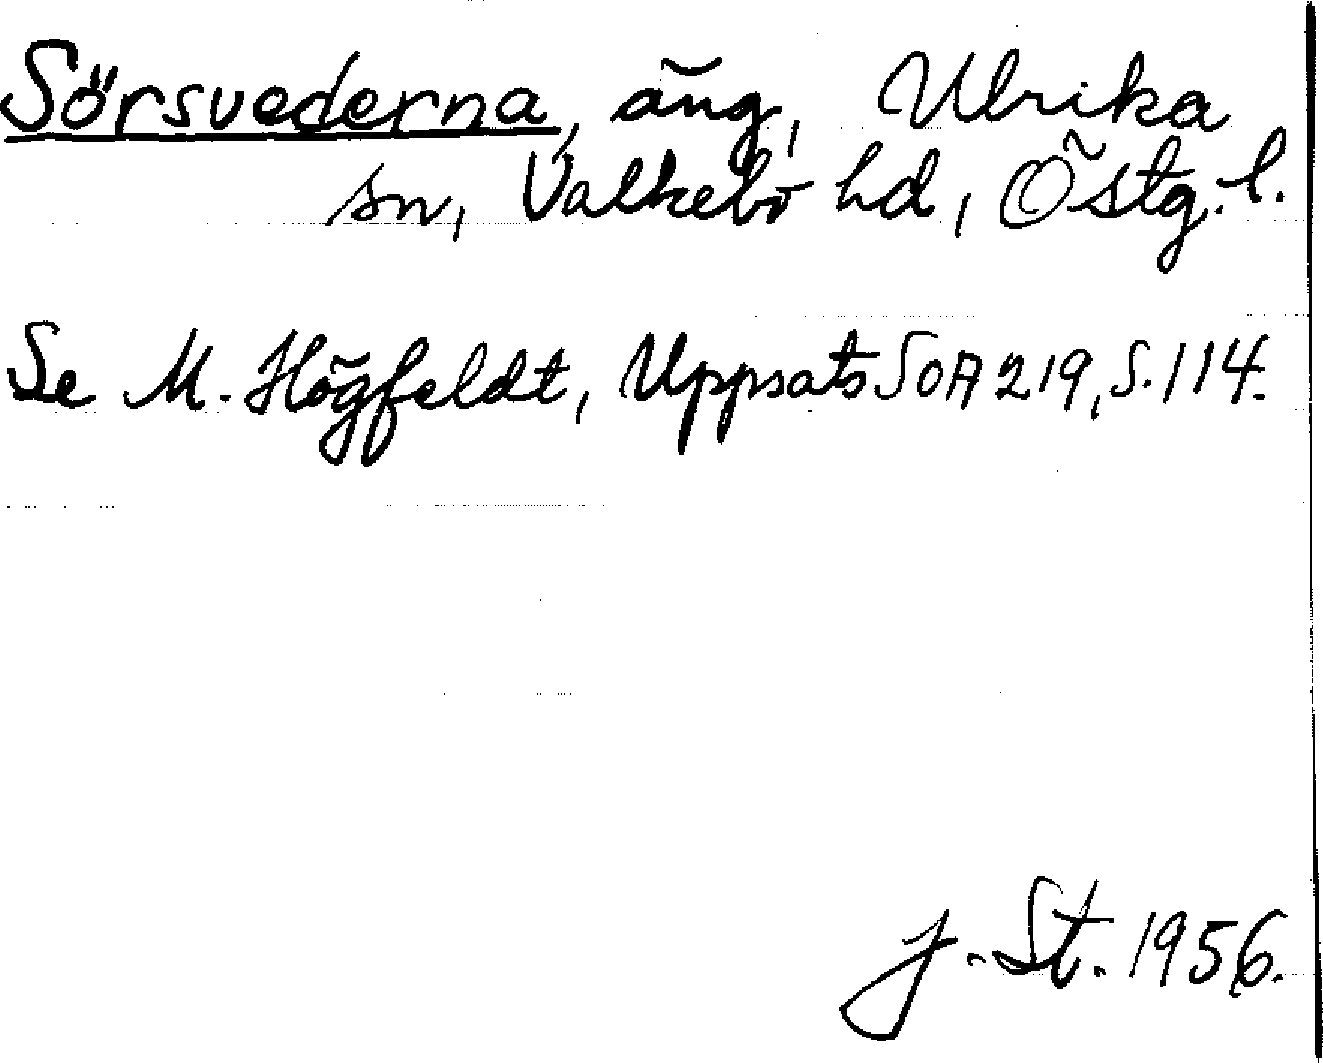 Sörsvederna, äng, Ulrika
sn, Valkebo hd, Östg. l.
Se M. Högfeldt, Uppsats SOA 219, S. 114.
J. St. 1956.